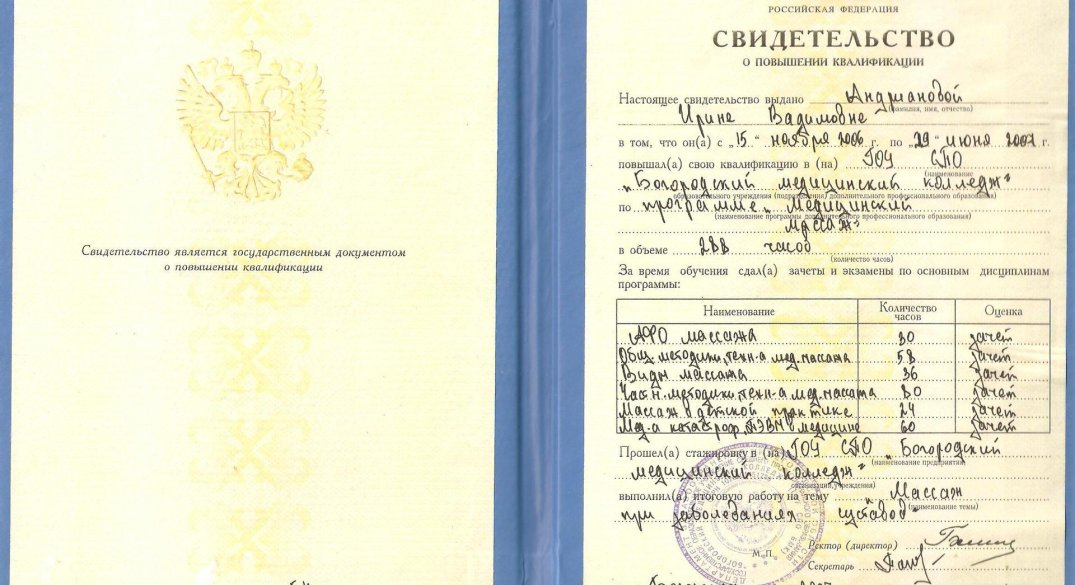 Свидетельство является государственным документом
о повышении квалификации
РОССИЙСКАЯ ФЕДЕРАЦИЯ
СВИДЕТЕЛЬСТВО
О ПОВЫШЕНИИ КВАЛИФИКАЦИИ
Настоящее свидетельство выдано Андриановой
(фамилия, имя, отчество)
Ирине Вадимовне
в том, что он(а) с „15“ ноября 2006 г. по „29“ июня 2007 г.
повышал(а) свою квалификацию в (на) ГОУ СПО
(наименование
„Богородский медицинский колледж“
образовательного учреждения (подразделения) дополнительного профессионального образования)
по программе „Медицинский
(наименование программы дополнительного профессионального образования)
массаж“
в объеме 288 часов
(количество часов)
За время обучения сдал(а) зачеты и экзамены по основным дисциплинам
программы:
Наименование Количество часов Оценка
АФО массажа 30 зачет
Общ. методики, техн-а мед. массажа 58 зачет
Виды массажа 36 зачет
Частн. методики, техн-а мед. массажа 80 зачет
Массаж в детской практике 24 зачет
Мед-а катастроф, ПЭВМ в медицине 60 зачет
Прошел(а) стажировку в (на) ГОУ СПО „Богородский
(наименование предприятия,
медицинский колледж“
организации, учреждения)
выполнил(а) итоговую работу на тему „Массаж
(наименование темы)
при заболеваниях суставов“
М. П.
Ректор (директор)
Секретарь